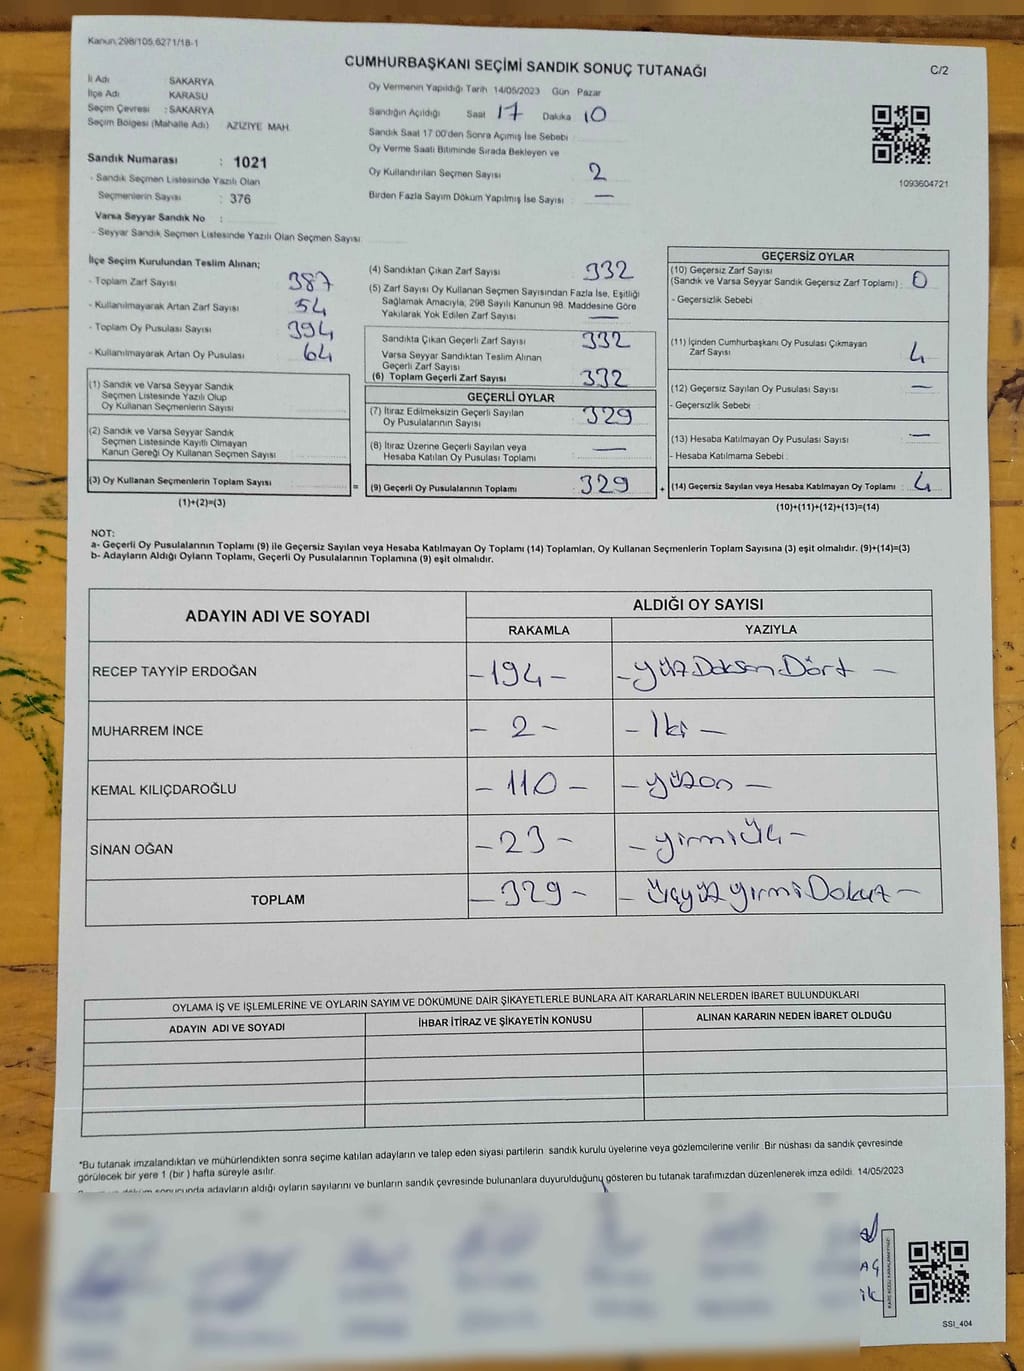 Kanun 298/105,6271/18-1
CUMHURBAŞKANI SEÇİMİ SANDIK SONUÇ TUTANAĞI
C/2
İl Adı SAKARYA
İlçe Adı KARASU
Seçim Çevresi : SAKARYA
Seçim Bölgesi (Mahalle Adı) AZİZİYE MAH.
Sandık Numarası : 1021
- Sandık Seçmen Listesinde Yazılı Olan
Seçmenlerin Sayısı : 376
Varsa Seyyar Sandık No :
- Seyyar Sandık Seçmen Listesinde Yazılı Olan Seçmen Sayısı
Oy Vermenin Yapıldığı Tarih 14/05/2023 Gün Pazar
Sandığın Açıldığı Saat 17 Dakika 10
Sandık Saat 17 00'den Sonra Açılmış İse Sebebi
Oy Verme Saati Bitiminde Sırada Bekleyen ve
Oy Kullandırılan Seçmen Sayısı 2
Birden Fazla Sayım Döküm Yapılmış İse Sayısı —
1093604721
İlçe Seçim Kurulundan Teslim Alınan;
- Toplam Zarf Sayısı 387
- Kullanılmayarak Artan Zarf Sayısı 54
- Toplam Oy Pusulası Sayısı 394
- Kullanılmayarak Artan Oy Pusulası 64
(1) Sandık ve Varsa Seyyar Sandık
Seçmen Listesinde Yazılı Olup
Oy Kullanan Seçmenlerin Sayısı
(2) Sandık ve Varsa Seyyar Sandık
Seçmen Listesinde Kayıtlı Olmayan
Kanun Gereği Oy Kullanan Seçmen Sayısı
(3) Oy Kullanan Seçmenlerin Toplam Sayısı =
(1)+(2)=(3)
(4) Sandıktan Çıkan Zarf Sayısı 332
(5) Zarf Sayısı Oy Kullanan Seçmen Sayısından Fazla İse, Eşitliği
Sağlamak Amacıyla, 298 Sayılı Kanunun 98. Maddesine Göre
Yakılarak Yok Edilen Zarf Sayısı —
Sandıkta Çıkan Geçerli Zarf Sayısı 332
Varsa Seyyar Sandıktan Teslim Alınan
Geçerli Zarf Sayısı
(6) Toplam Geçerli Zarf Sayısı 332
GEÇERLİ OYLAR
(7) İtiraz Edilmeksizin Geçerli Sayılan
Oy Pusulalarının Sayısı 329
(8) İtiraz Üzerine Geçerli Sayılan veya
Hesaba Katılan Oy Pusulası Toplamı —
(9) Geçerli Oy Pusulalarının Toplamı 329 +
GEÇERSİZ OYLAR
(10) Geçersiz Zarf Sayısı
(Sandık ve Varsa Seyyar Sandık Geçersiz Zarf Toplamı) : 0
- Geçersizlik Sebebi
(11) İçinden Cumhurbaşkanı Oy Pusulası Çıkmayan
Zarf Sayısı 4
(12) Geçersiz Sayılan Oy Pusulası Sayısı —
- Geçersizlik Sebebi
(13) Hesaba Katılmayan Oy Pusulası Sayısı —
- Hesaba Katılmama Sebebi
(14) Geçersiz Sayılan veya Hesaba Katılmayan Oy Toplamı : 4
(10)+(11)+(12)+(13)=(14)
NOT:
a- Geçerli Oy Pusulalarının Toplamı (9) ile Geçersiz Sayılan veya Hesaba Katılmayan Oy Toplamı (14) Toplamları, Oy Kullanan Seçmenlerin Toplam Sayısına (3) eşit olmalıdır. (9)+(14)=(3)
b- Adayların Aldığı Oyların Toplamı, Geçerli Oy Pusulalarının Toplamına (9) eşit olmalıdır.
ADAYIN ADI VE SOYADI ALDIĞI OY SAYISI
RAKAMLA YAZIYLA
RECEP TAYYİP ERDOĞAN -194- -yüz Doksan Dört -
MUHARREM İNCE - 2 - - İki -
KEMAL KILIÇDAROĞLU - 110 - - yüzon -
SİNAN OĞAN - 23 - - yirmi üç -
TOPLAM - 329 - - Üçyüz yirmi Dokuz -
OYLAMA İŞ VE İŞLEMLERİNE VE OYLARIN SAYIM VE DÖKÜMÜNE DAİR ŞİKAYETLERLE BUNLARA AİT KARARLARIN NELERDEN İBARET BULUNDUKLARI
ADAYIN ADI VE SOYADI İHBAR İTİRAZ VE ŞİKAYETİN KONUSU ALINAN KARARIN NEDEN İBARET OLDUĞU
*Bu tutanak imzalandıktan ve mühürlendikten sonra seçime katılan adayların ve talep eden siyasi partilerin sandık kurulu üyelerine veya gözlemcilerine verilir. Bir nüshası da sandık çevresinde
görülecek bir yere 1 (bir ) hafta süreyle asılır.
adayların aldığı oyların sayılarını ve bunların sandık çevresinde bulunanlara duyurulduğunu gösteren bu tutanak tarafımızdan düzenlenerek imza edildi. 14/05/2023
SSI_404